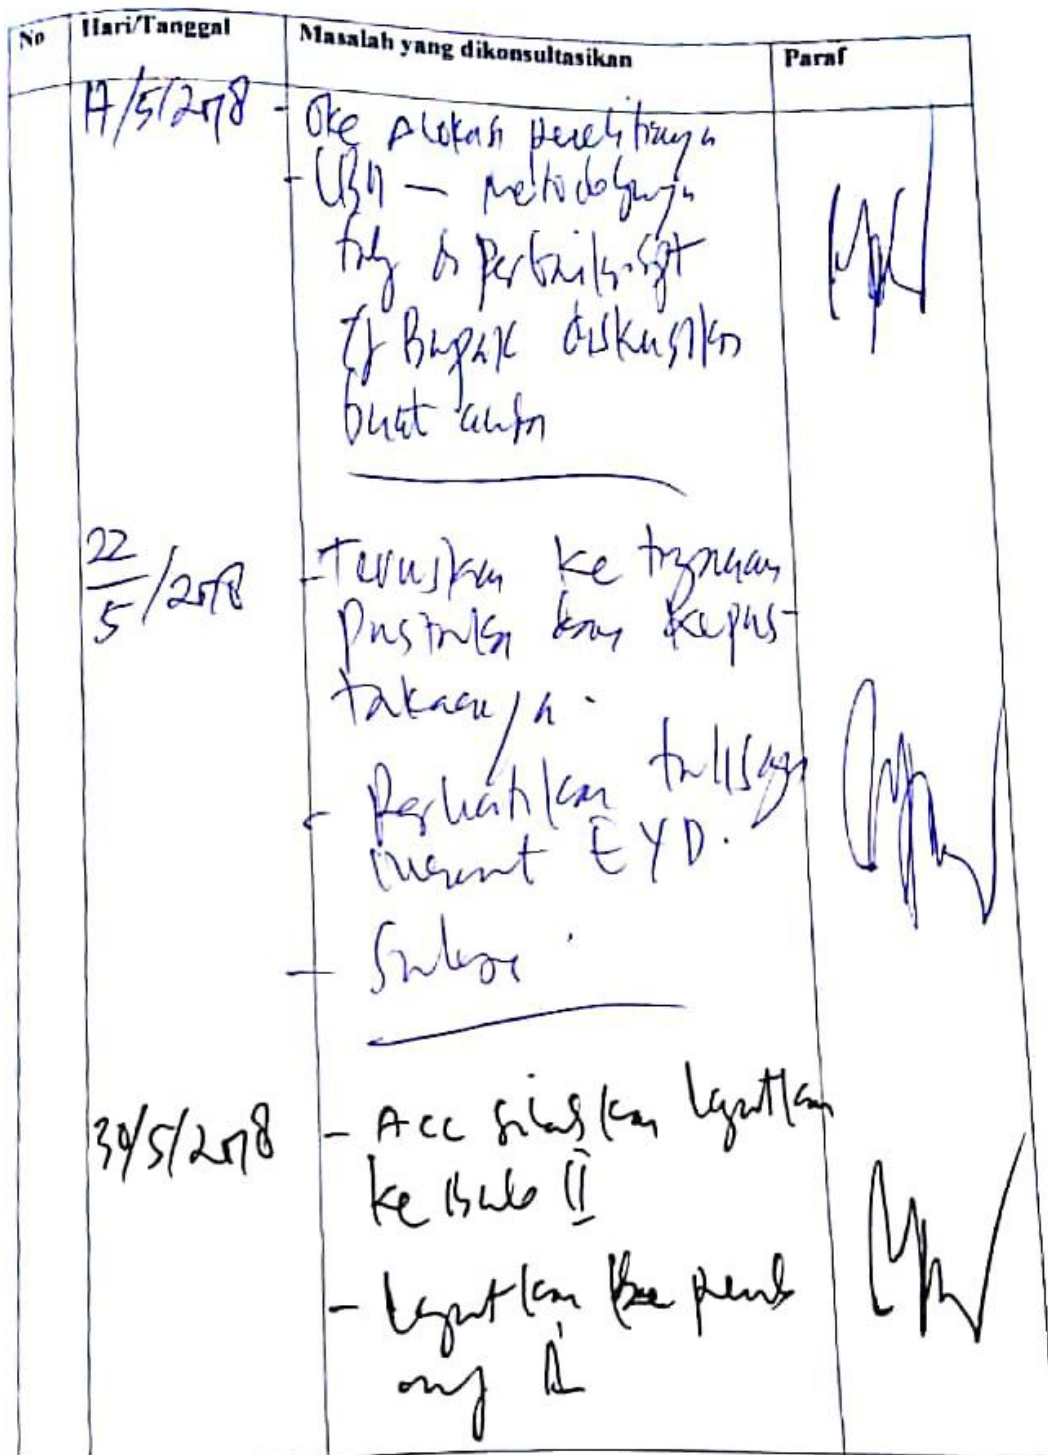 No Hari/Tanggal Masalah yang dikonsultasikan Paraf
17/5/2018 - Oke Alokasi penelitiannya
- metodologinya
di perbaiki
Bapak diskusikan
buat
22/5/2018 - Teruskan ke tinjauan
pustaka dan kepus-
takaannya.
- Perhatikan tulisannya
menurut EYD.
- Sukses.
30/5/2018 - Acc silaskan lanjutkan
ke Bab II
- lanjutkan ke pemb